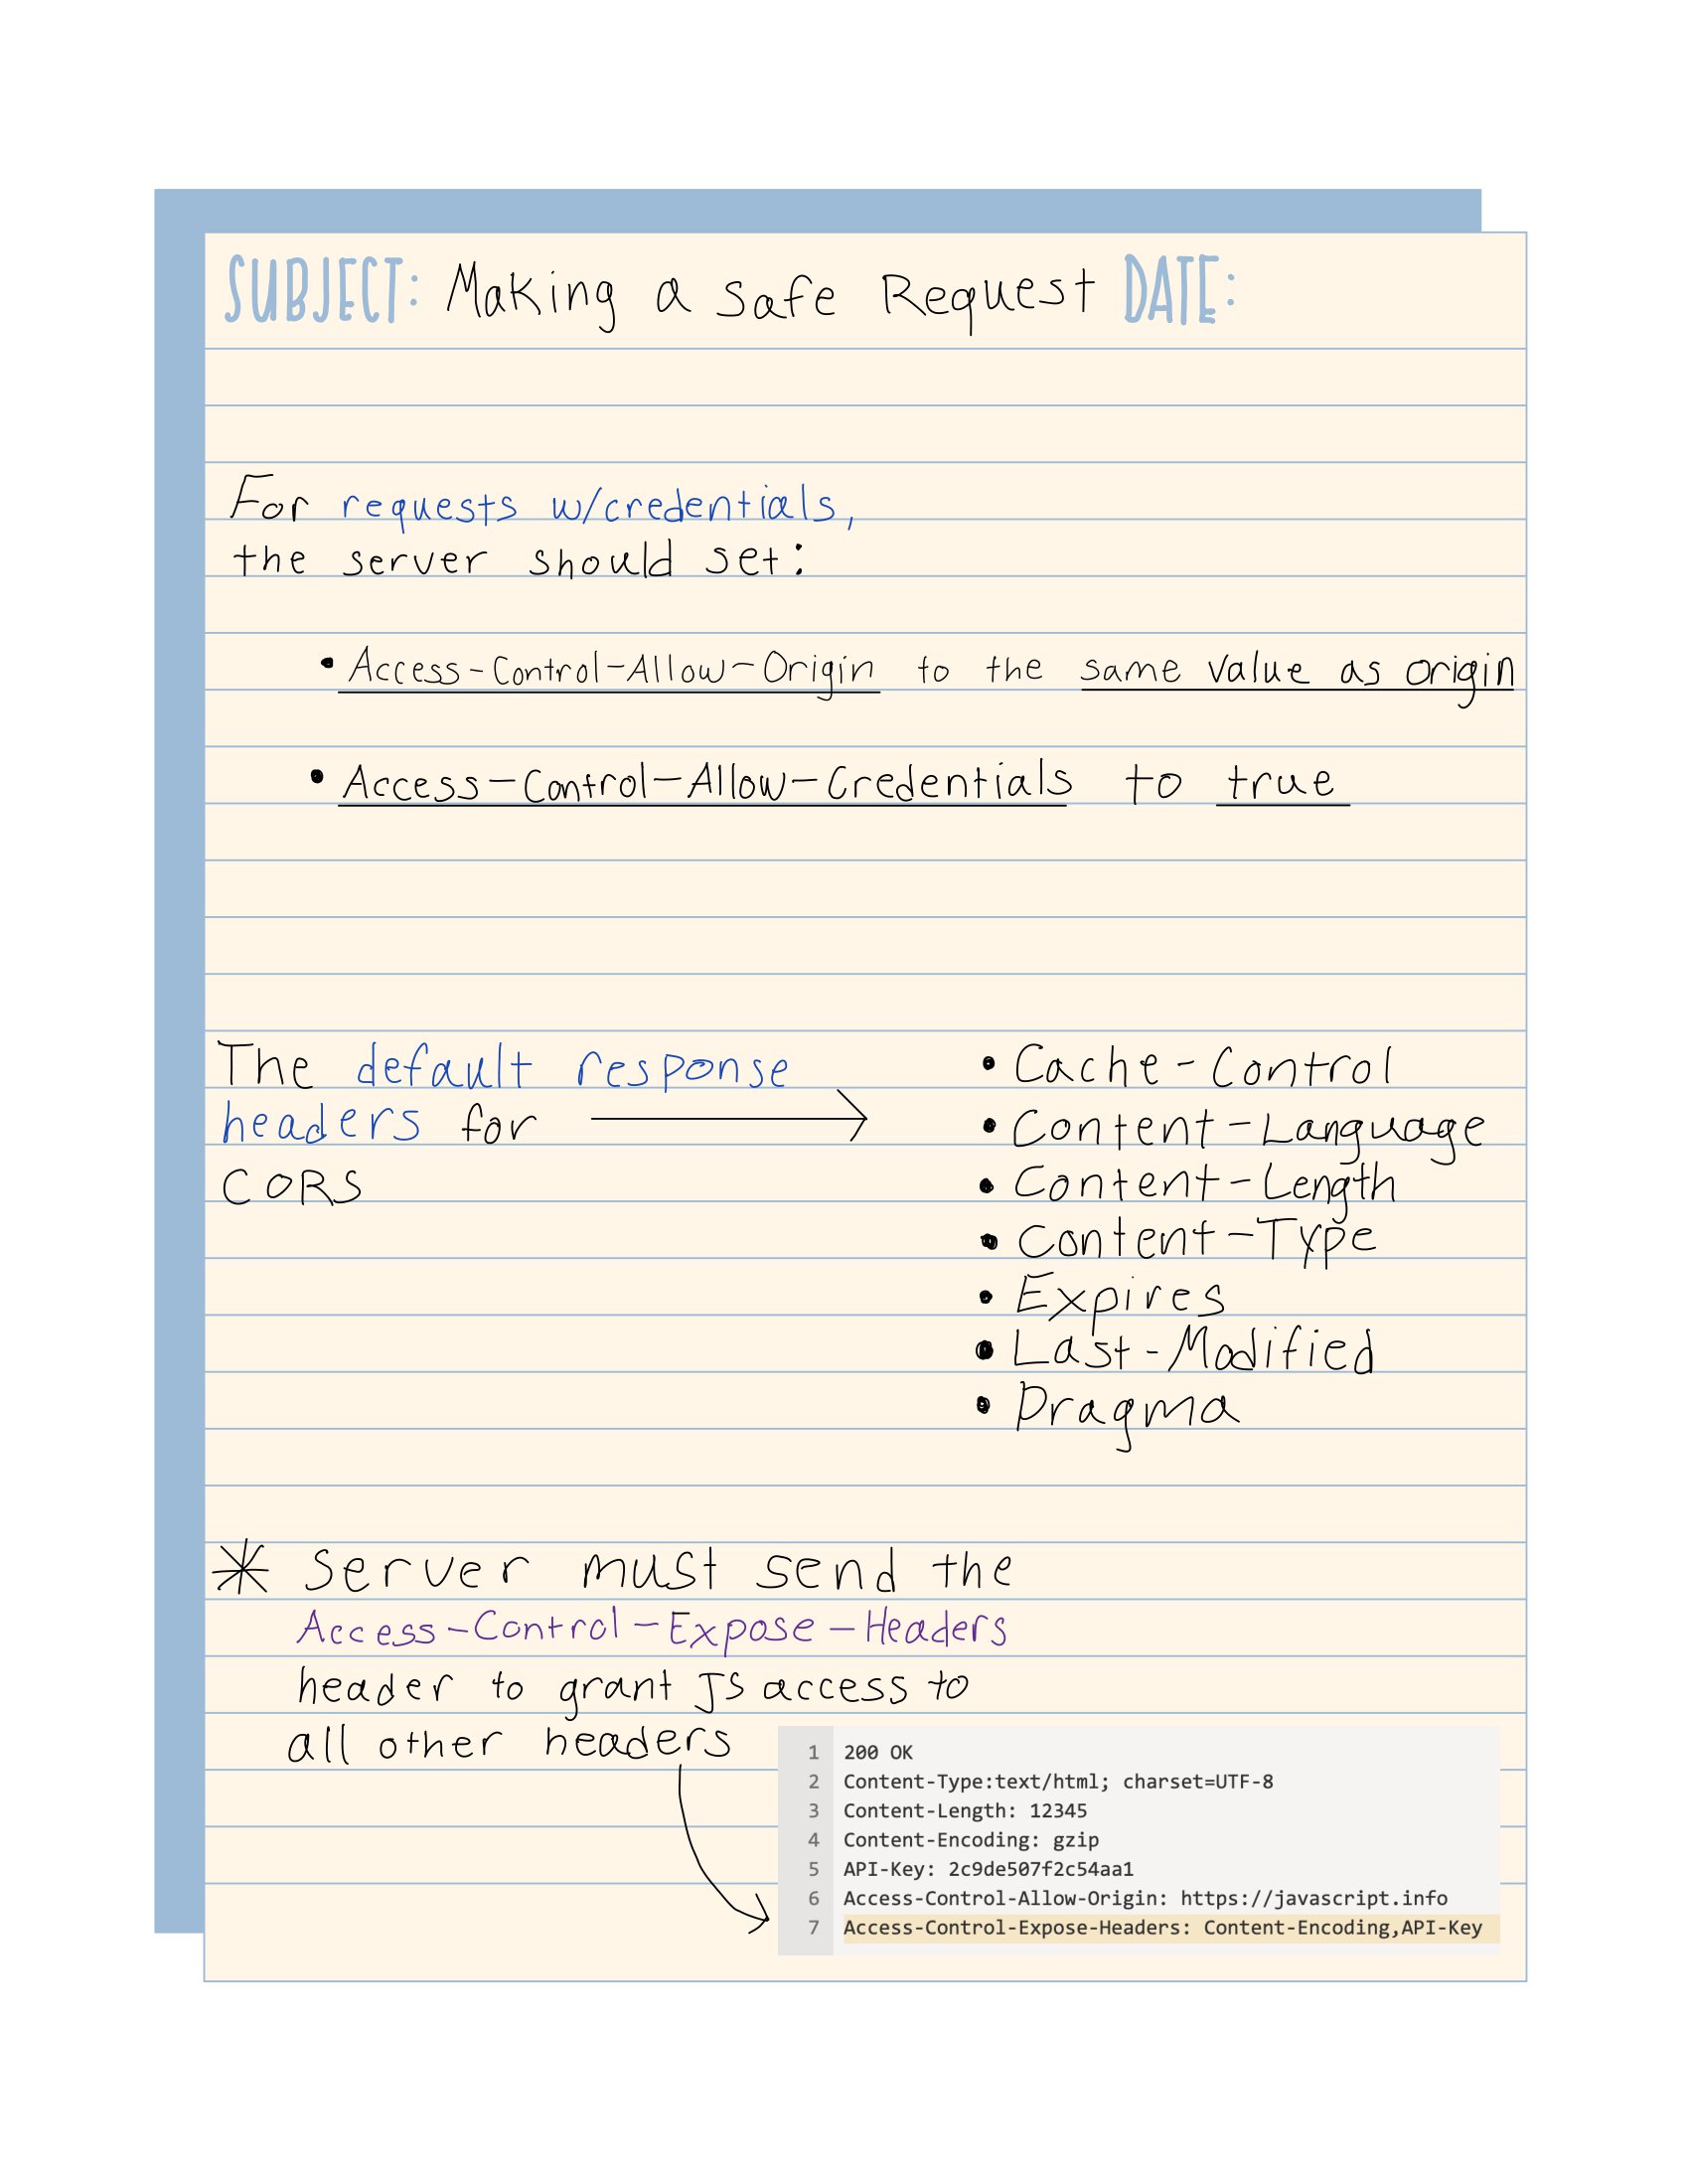 SUBJECT: Making a safe Request DATE:
For requests w/credentials,
the server should set:
• Access-Control-Allow-Origin to the same value as origin
• Access-Control-Allow-Credentials to true
The default response
headers for
CORS
• Cache-Control
• Content-Language
• Content-Length
• Content-Type
• Expires
• Last-Modified
• Pragma
* Server must send the
Access-Control-Expose-Headers
header to grant JS access to
all other headers
1 200 OK
2 Content-Type:text/html; charset=UTF-8
3 Content-Length: 12345
4 Content-Encoding: gzip
5 API-Key: 2c9de507f2c54aa1
6 Access-Control-Allow-Origin: https://javascript.info
7 Access-Control-Expose-Headers: Content-Encoding,API-Key